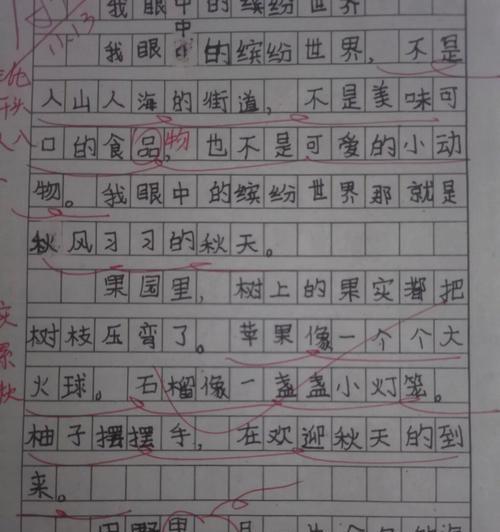 我眼中的缤纷世界
我眼中的缤纷世界，不是
人山人海的街道，不是美味可
口的食品，物也不是可爱的小动
物。我眼中的缤纷世界那就是
秋风习习的秋天。
果园里，树上的果实都把
树枝压弯了。苹果像一个个大
火球。石榴像一盏盏小灯笼。
柚子摆摆手，在欢迎秋天的到
来。